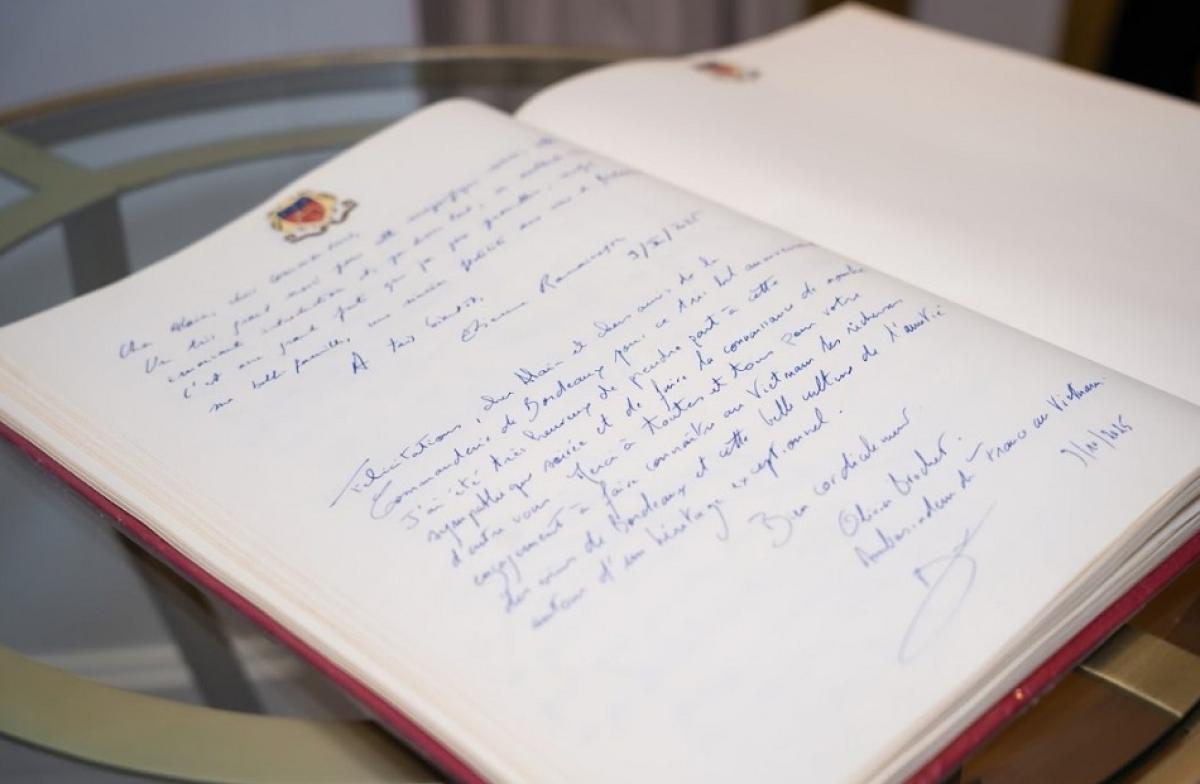 Cher Alain, cher commandeur,
Un très grand merci pour cette magnifique soirée, cette
émouvante introduction et,
c'est une grande fierté que
ma belle famille, une
A très bientôt,
Etienne
9/X/2025
Félicitations, cher Alain et chers amis de la
Commanderie de Bordeaux pour ce très bel anniversaire
J'ai été très heureux de prendre part à cette
sympathique soirée et de faire la connaissance de nombre
d'entre vous. Merci à toutes et tous pour votre
engagement à faire connaître au Vietnam les richesses
des vins de Bordeaux et cette belle culture de l'amitié
autour d'un héritage exceptionnel.
Bien cordialement
Olivier Brochet.
Ambassadeur de France au Vietnam.
9/10/2025